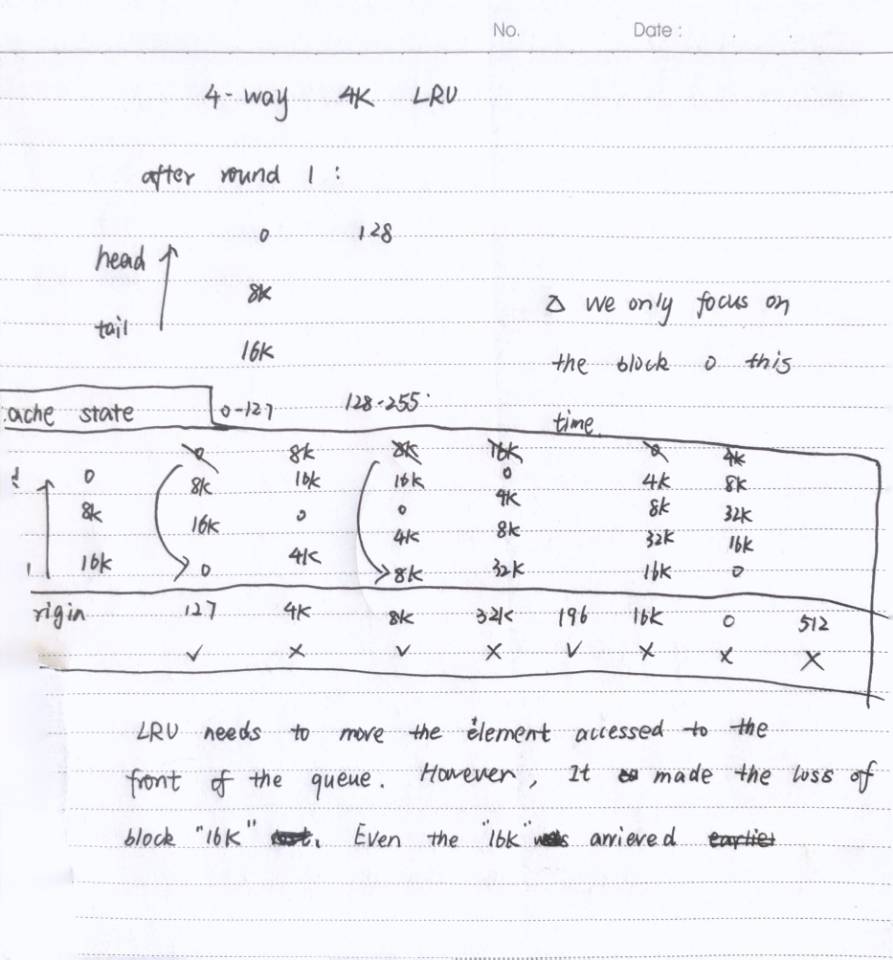 No. Date :
4-way 4K LRU
after round 1 :
0 128
head
8K
tail
16K
△ we only focus on
the block 0 this
time.
ache state 0-127 128-255
0 8K 8K 16K 0 4K
0 8K 16K 16K 0 4K 8K
8K 16K 0 0 4K 8K 32K
4K 8K 32K 16K
16K 0 4K 8K 32K 16K 0
rigin 127 4K 8K 32K 196 16K 0 512
✓ × ✓ × ✓ × × ×
LRU needs to move the element accessed to the
front of the queue. However, It made the loss of
block "16K". Even the "16K" arrieved earlier